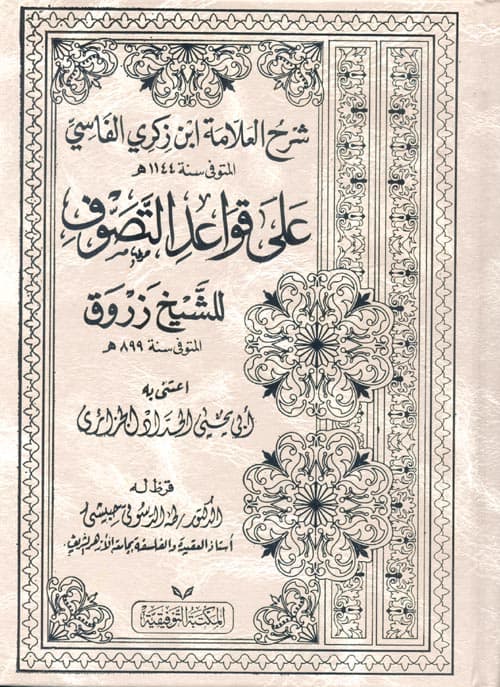 شرح العلامة ابن زكري الفاسي
المتوفى سنة ١١٤٤هـ
على قواعد التصوف
للشيخ زروق
المتوفى سنة ٨٩٩هـ
اعتنى به
أبي يحيى الحداد الجزائري
قرظ له
الدكتور طه الدسوقي حبيشي
أستاذ العقيدة والفلسفة بجامعة الأزهر الشريف.
المكتبة التوفيقية